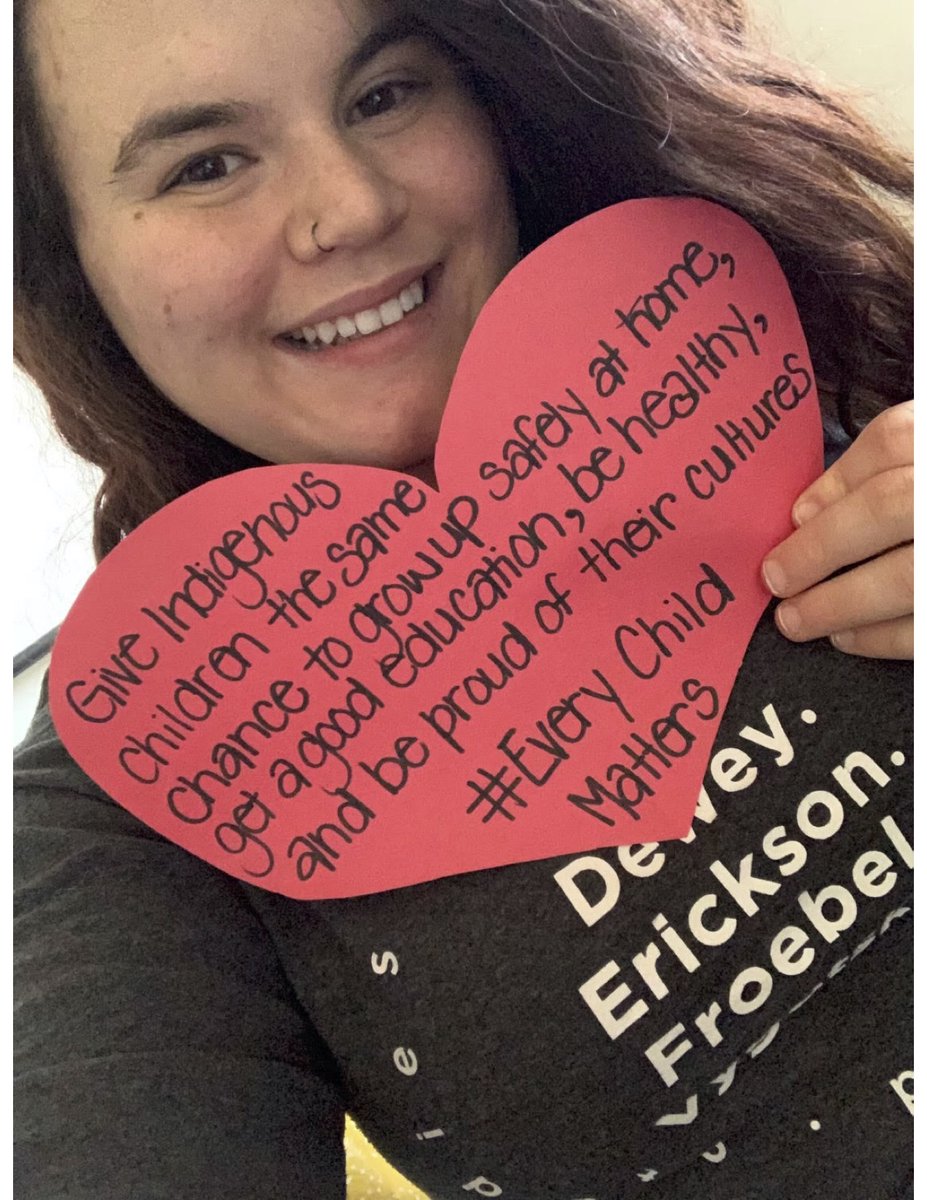 Give Indigenous
children the same
chance to grow up safely at home,
get a good education, be healthy,
and be proud of their cultures
#Every Child
Matters
Dewey.
Erickson.
Froebel